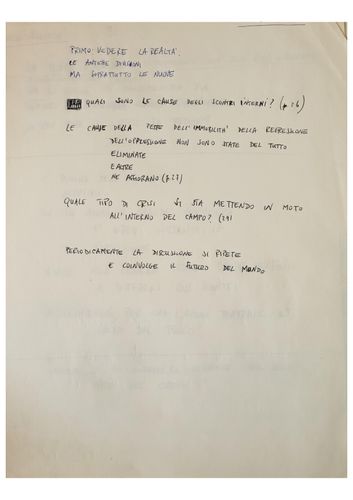 PRIMO: VEDERE LA REALTÀ.
LE ANTICHE DIVISIONI
MA SOPRATTUTTO LE NUOVE
QUALI SONO LE CAUSE DEGLI SCONTRI INTERNI? (p 26)
LE CAUSE DELLA PESTE DELL'IMMOBILITÀ DELLA REPRESSIONE
DELL'OPPRESSIONE NON SONO STATE DEL TUTTO
ELIMINATE
E ALTRE
NE AFFIORANO (p.27)
QUALE TIPO DI CRISI SI STA METTENDO IN MOTO
ALL'INTERNO DEL CAMPO? (29)
PERIODICAMENTE LA DISCUSSIONE SI RIPETE
E COINVOLGE IL FUTURO DEL MONDO